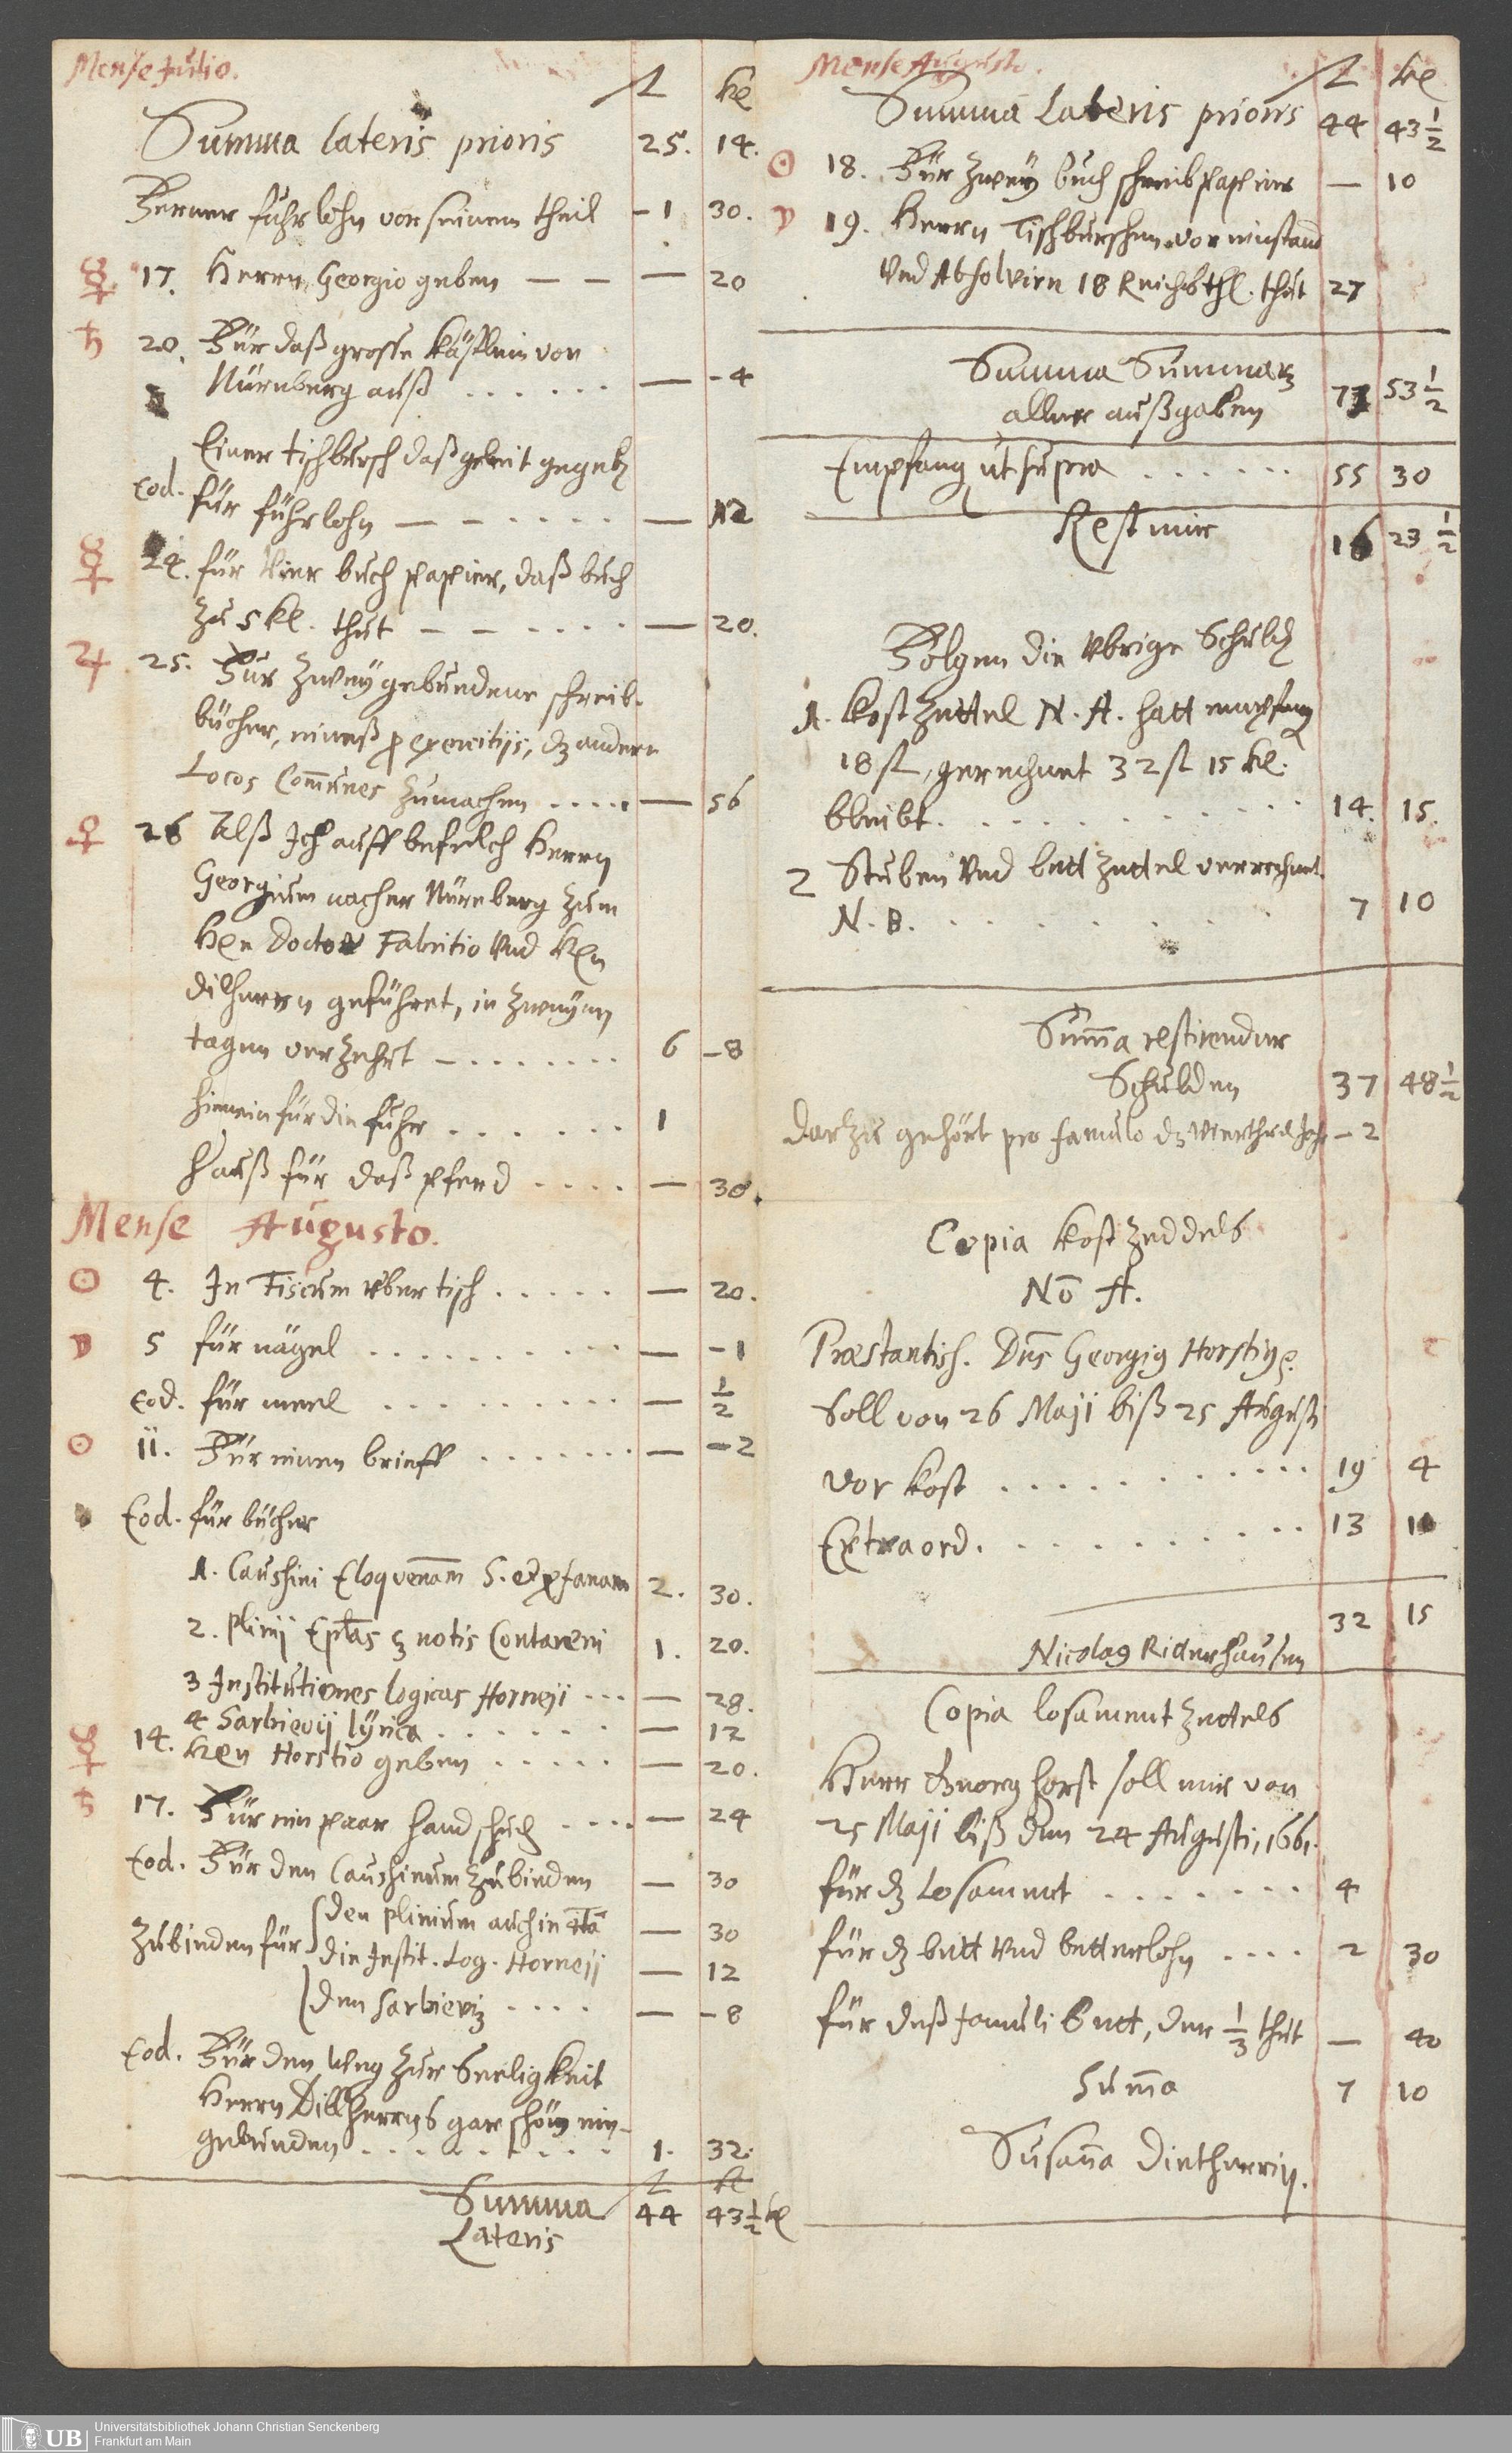 Mense Julio.
fl kr
Summa lateris prioris 25. 14.
Ferner fuhrlohn vor seinem theil - 1 30.
☿ 17. Herrn Georgio geben — — — 20
♄ 20. Für daß grosse Kästlein von
Nürnberg auß . . . . . . — - 4
Einer tischbursch daß geleit gegeben
Eod. für fuhrlohn — - - . . . . . — 12
☿ 24. für Vier buch papier, daß buch
zu 5 kr. thut — - - . . . . — 20.
♃ 25. Für zwey gebundene schreib-
bücher, eineß pro exercitijs, dz andere
Locos Communes zumachen . . . . . — 56
♀ 26 Alß Ich auff befelch Herrn
Georgium nacher Nürnberg zum
Hrn Doctor Fabritio Vnd Hrn
Dilherrn geführet, in zweyen
tagen verzehrt — . . . . . . . . 6 - 8
hinein für die fuhr . . . . . . 1
herauß für daß pferd . . . . — 30.
Mense Augusto.
☉ 4. In Fiscum vber tisch . . . . . — 20.
☽ 5 für nägel . . . . . . . . . . — - 1
eod. für meel . . . . . . . . . — ½
☉ 11. Für einen brieff . . . . . . . — - 2
Eod. für bücher
1. Caussini Eloquentiam S. et profanam 2. 30.
2. Plinij Eplas c notis Contareni 1. 20.
3 Institutiones logicas Horneji . . . — 28.
4 Sarbievij lyrica . . . . . . — 12
☿ 14. Hrn Horstio geben . . . . . — 20.
♄ 17. Für ein paar handschuh . . . . — 24
Eod. Für den Caussinum zubinden — 30
den Plinium auch in 4to — 30
zubinden für die Instit. Log. Horneji — 12
den Sarbieviu . . . . — - 8
Eod. Für den Weg zur Seeligkeit
Herrn Dillherrns gar schön ein-
gebunden . . . . . . . . . 1. 32.
fl kr
Summa 44 43½ kr
Lateris
Mense Augusto.
fl kr
Summa Lateris prioris 44 43½
☉ 18. Für zwey buch schreibpapier — 10
☽ 19. Herrn Tischburschen vor einstand
Vnd Absolviren 18 Reichsthl. thut 27
Summa Summarum
aller außgaben 71 53½
Empfang ut supra . . . . . . 55 30
Rest mir 16 23½
Folgen die Vbrige Schulden
1. Kostzettel N. A. hatt empfangen
18 fl, gerechnet 32 fl 15 kr.
bleibt . . . . . . . . . . . 14. 15.
2 Stuben Vnd bett zettel verrechnet
N. B. . . . . . . . . 7 10
Suma restirender
Schulden 37 48½
Darzu gehört pro famulo dz Vierthel Jahr - 2
Copia Kostzeddels
No A.
Præstantiss. Dns Georgius Horstius
Soll von 26 Maji biß 25 Augusti
vor Kost . . . . . . . . . . . 19 4
Extraord. . . . . . . . . . 13 11
32 15
Nicolas Riderhausen
Copia losament zettels
Herr Georg Horst soll mir von
25 Maji biß den 24 Augusti, 1661.
für dz Losament . . . . . . . 4
für dz bett Vnd betterlohn . . . . 2 30
für deß famuli Bett, der ⅓ thut — 40
Suma 7 10
Susanna Dietherrin.
UB Universitätsbibliothek Johann Christian Senckenberg
Frankfurt am Main